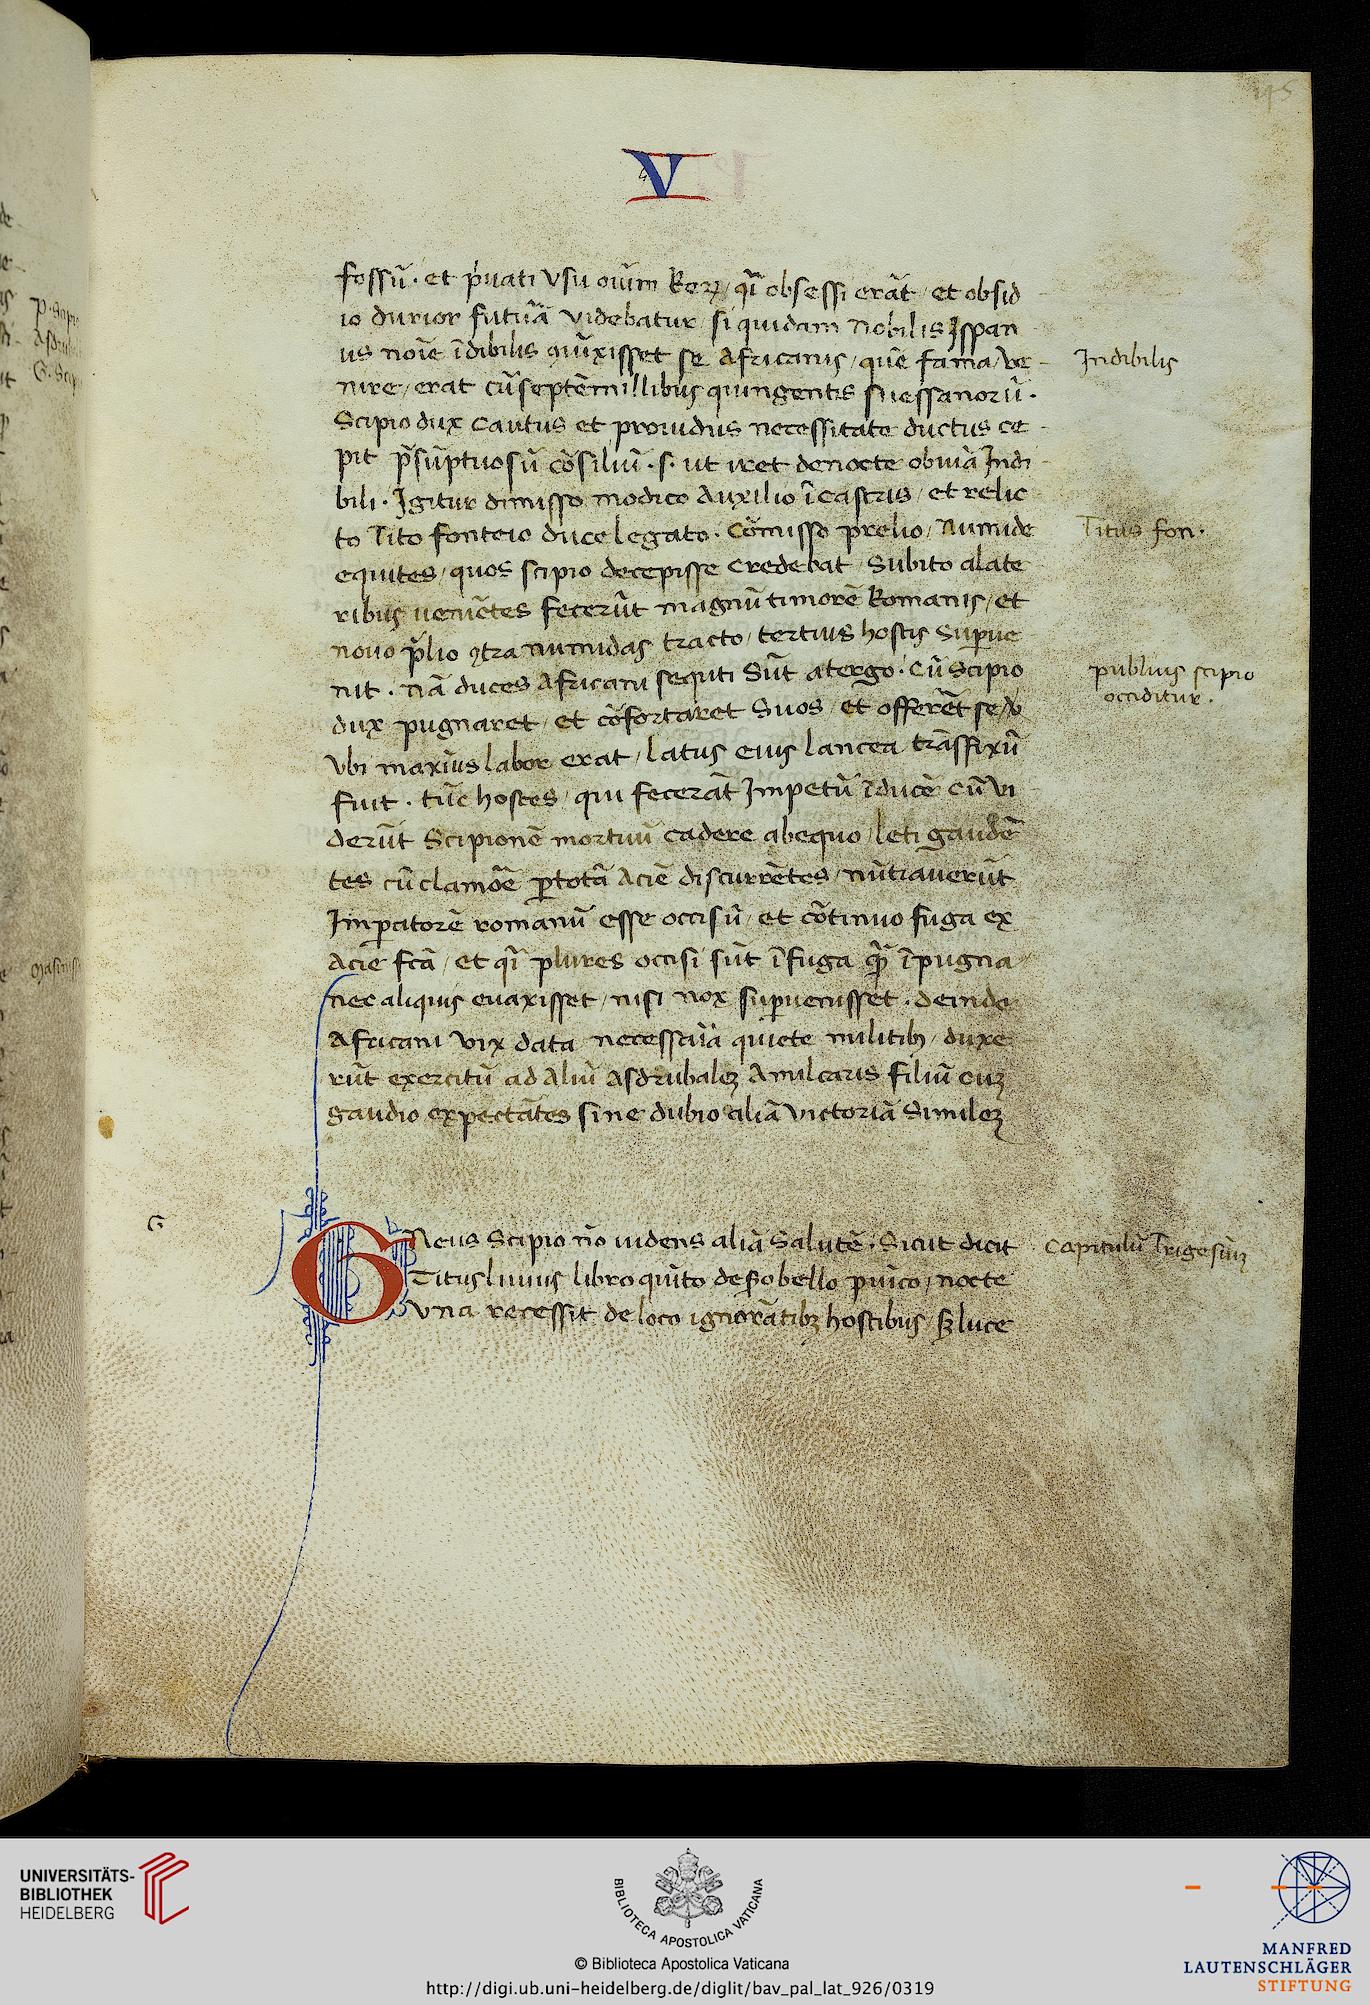 V
fossū. et p̄uati vsu oīum Reꝝ, qī obsessi erāt, et obsid
io durior futūa videbatur, si quidam nobilis Jspan
us noīe īdibilis ꝯiūxisset se Africanis, quē fama, ve
nire, erat cū septēmillibus quingentis suessanorū.
Scipio dux cautus et prouidus necessitate ductus ce
pit p̄sūptuosū cōsiliū. s. ut iret denocte obuiā Indi
bili. Igitur dimisso modico Auxilio ī castris, et relic
to Tito fonteio duce legato. Cōmisso prelio, Numide
equites, quos scipio decepisse credebat, Subito alate
ribus ueniētes fecerūt magnū timorē Romanis, et
nouo p̄lio ꝯtra numidas tracto, tertius hostis Suꝑue
nit. nā duces Africani sequti Sūt atergo. Cū Scipio
dux pugnaret, et cōfortaret Suos, et offerēt se, v
vbi maxius labor erat, latus eius lancea trāsfixū
fuit. tūc hostes, qui fecerāt Impetū ī ducē cū vi
derūt Scipionē mortuū cadere abequo, leti gaudē
tes cū clamōe ꝑtotā Aciē discurrētes, nūtiauerūt
Imꝑatorē romanū esse occisū, et cōtinuo fuga ex
Acie fcā, et qī plures occisi sūt ī fuga q̄ꝫ ī pugna
nec aliquis euaxisset, nisi nox suꝑuenisset. deinde
Africani vix data necessaīa quiete militibꝫ, duxe
rūt exercitū ad Aliū Asdrubaleꝫ Amilcaris filiū cuꝫ
gaudio expectātes sine dubio aliā victoriā Simileꝫ
Gneus Scipio nō uidens aliā Salutē. Sicut dicit
Titus liuius libro quīto de scd̄o bello p̄uico, nocte
vna recessit de loco ignorātibꝫ hostibus, sꝫ luce
Indibilis
Titus fon.
publius scipio
occiditur.
Capitulū Trigesimꝫ
G
195
UNIVERSITÄTS-
BIBLIOTHEK
HEIDELBERG
BIBLIOTECA APOSTOLICA VATICANA
© Biblioteca Apostolica Vaticana
http://digi.ub.uni-heidelberg.de/diglit/bav_pal_lat_926/0319
MANFRED
LAUTENSCHLÄGER
STIFTUNG